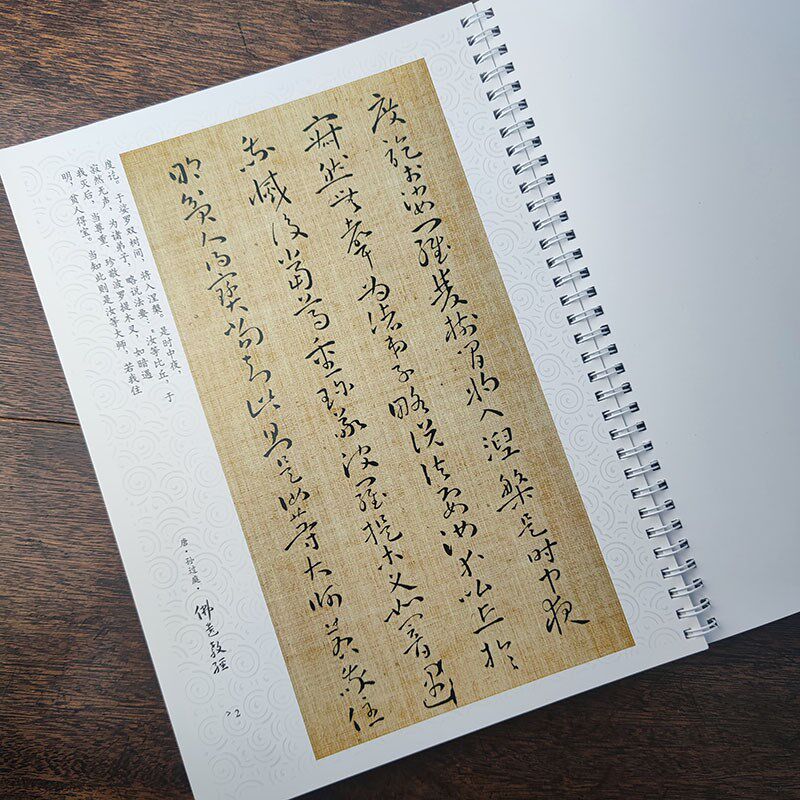 度訖於娑羅雙樹間將入涅槃是時中夜
寂然無聲為諸弟子略説法要汝等比丘於
我滅後當尊重珍敬波羅提木叉如闇遇
明貧人得寶當知此則是汝等大師若我住
度讫。于娑罗双树间，将入涅槃。是时中夜，
寂然无声，为诸弟子，略说法要。汝等比丘，于
我灭后，当尊重、珍敬波罗提木叉，如暗遇
明，贫人得宝。当知此则是汝等大师，若我住
唐·孙过庭·佛遗教经
2